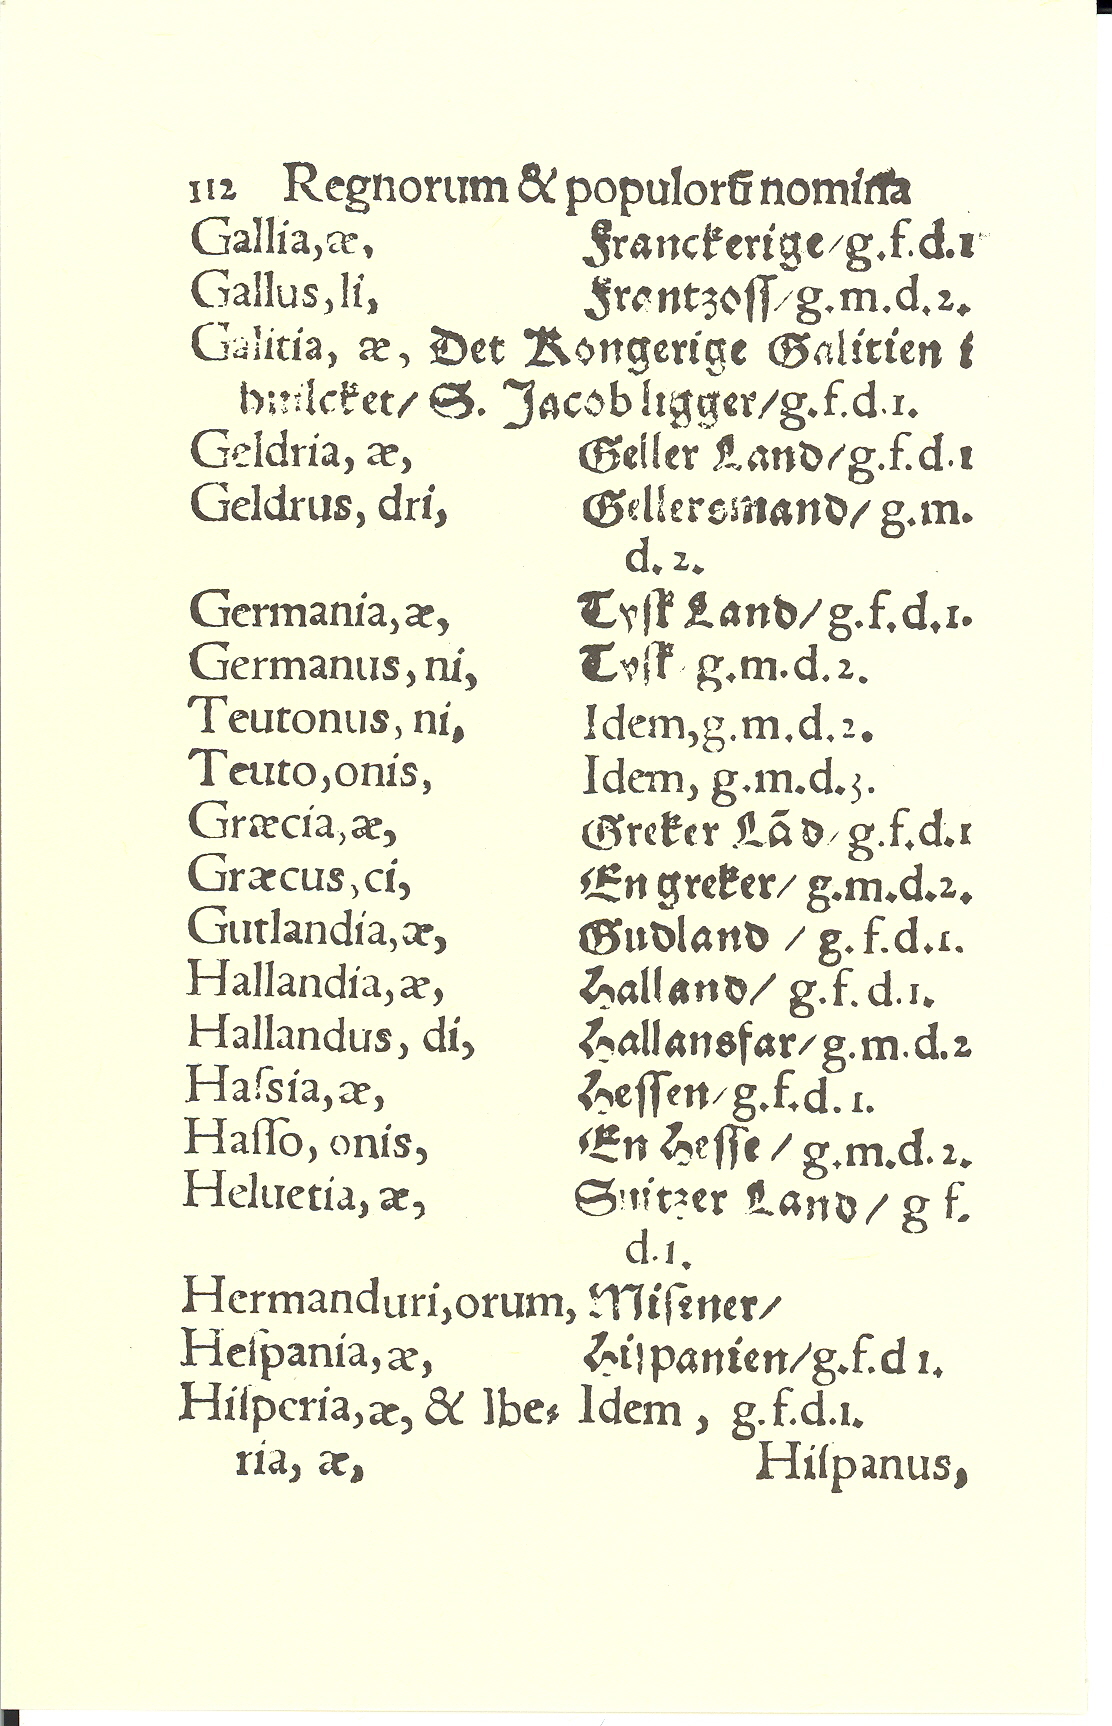 112 Regnorum & populorū nomina
Gallia, æ, Franckerige/ g.f.d.1
Gallus, li, Frantzoſſ/ g.m.d.2.
Galitia, æ, Det Kongerige Galitien i
huilcket/ S. Jacob ligger/ g.f.d.1.
Geldria, æ, Geller Land/ g.f.d.1
Geldrus, dri, Gellersmand/ g.m.
d.2.
Germania, æ, Tyſk Land/ g.f.d.1.
Germanus, ni, Tyſk g.m.d.2.
Teutonus, ni, Idem, g.m.d.2.
Teuto, onis, Idem, g.m.d.3.
Græcia, æ, Greker Lād/ g.f.d.1
Græcus, ci, En greker/ g.m.d.2.
Gutlandia, æ, Gudland / g.f.d.1.
Hallandia, æ, Halland/ g.f.d.1.
Hallandus, di, Hallansfar/ g.m.d.2
Haſsia, æ, Heſſen/ g.f.d.1.
Haſſo, onis, En Heſſe/ g.m.d.2.
Heluetia, æ, Suitzer Land/ g f.
d.1.
Hermanduri, orum, Miſener/
Heſpania, æ, Hiſpanien/ g.f.d 1.
Hiſperia, æ, & Ibe⸗ Idem, g.f.d.1.
ria, æ, Hiſpanus,